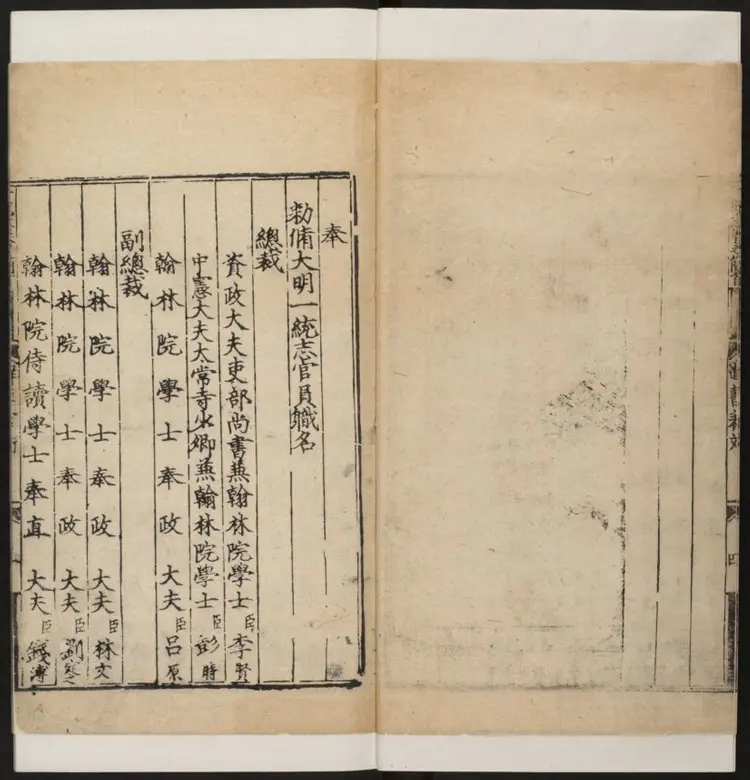 奉
勑脩大明一統志官員軄名
總裁
資政大夫吏部尚書蒹翰林院學士臣李賢
中憲大夫太常寺少卿蒹翰林院學士臣彭時
翰林院學士奉政大夫臣呂原
副總裁
翰林院學士奉政大夫臣林文
翰林院學士奉政大夫臣劉定之
翰林院侍讀學士奉直大夫錢溥